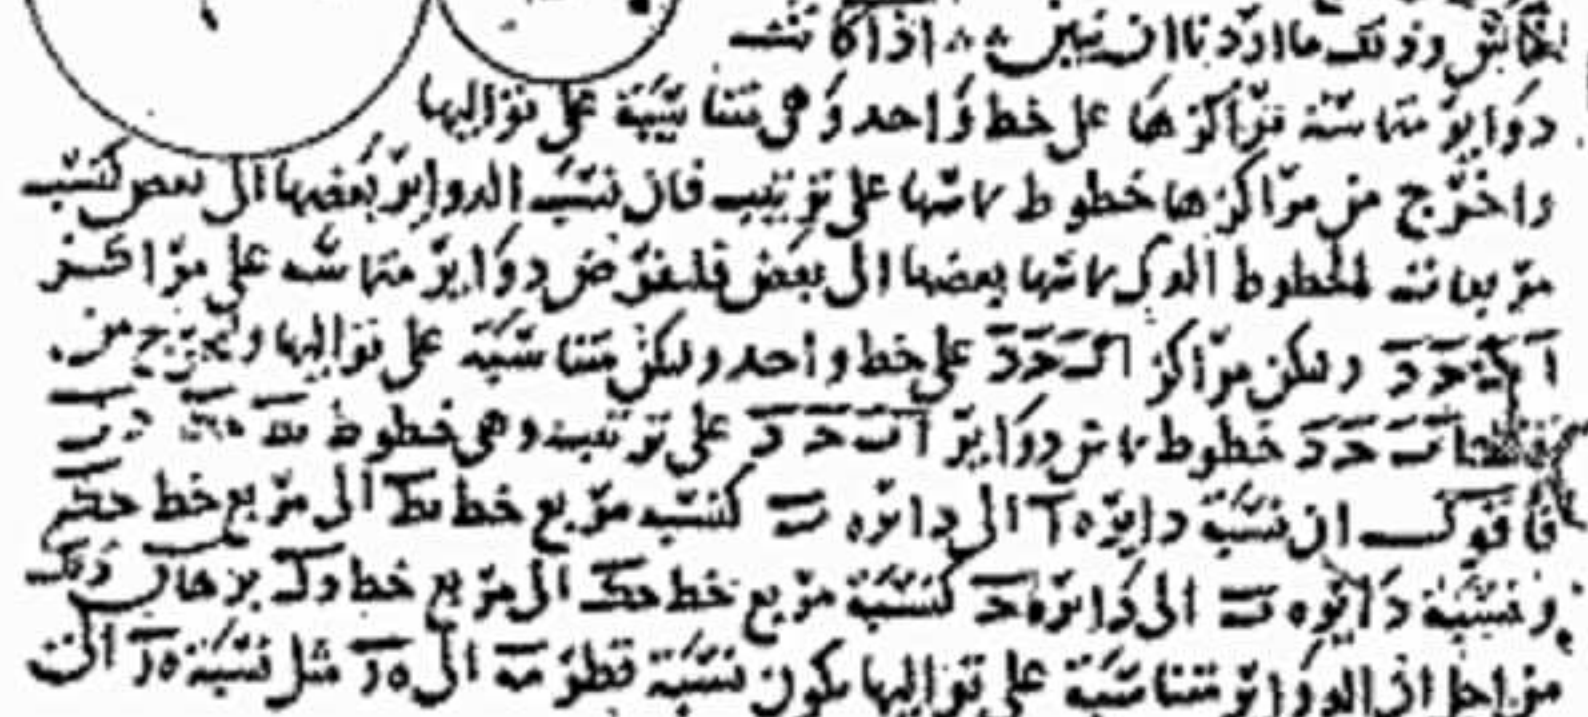 وذلك ما اردنا ان نبين ۞ اذا كانت
دوائر متماسّة مراكزها على خط واحد وهي متناسبة على تواليها
واخرج من مراكزها خطوط تماسّها على ترتيب فان نسبة الدوائر بعضها الى بعض كنسب
مربعات الخطوط التي تماسّها بعضها الى بعض فلنفرض دوائر متماسّه على مراكز
آ ب ج د ولتكن مراكز ا ب ج د على خط واحد ولتكن متناسبة على تواليها ولنخرج من
ب ج د خطوط تماس دوائر آ ب ج د على ترتيب وهي خطوط
فاقول ان نسبة دايرة آ الى دايره ب كنسبه مربع خط بط الى مربع خط
ونسبة دايره ب الى دايرة ج كنسبة مربع خط حك الى مربع خط دك برهان ذلك
من اجل ان الدوائر متناسبة على تواليها يكون نسبة قطر مه الى ه‍ر مثل نسبة ه‍ر الى